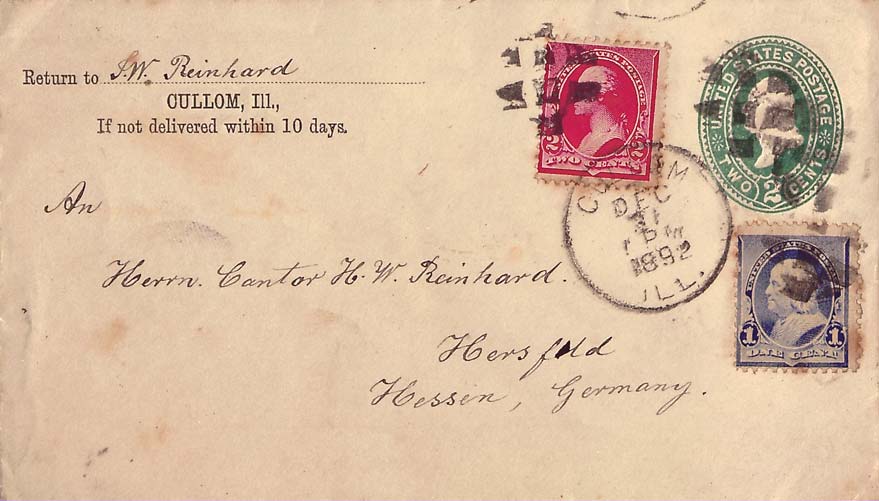 Return to J.W. Reinhard
CULLOM, Ill.,
If not delivered within 10 days.
An
Herrn. Cantor H. W. Reinhard.
Hersfeld
Hessen, Germany.
UNITED STATES POSTAGE
2 2
TWO CENTS
CULLOM
DEC
PM
1892
ILL.
UNITED STATES POSTAGE
TWO 2 CENTS
UNITED STATES POSTAGE
1 1
ONE CENT